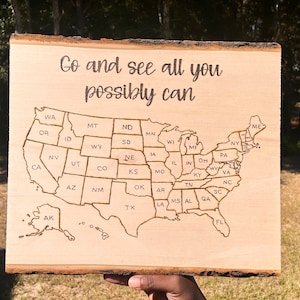 Go and see all you
possibly can
WA
MT
ND
MN
ME
OR
ID
WY
SD
WI
MI
NY
NE
IA
PA
NV
UT
CO
IL
IN
OH
CA
KS
MO
KY
WV
VA
AZ
NM
OK
AR
TN
NC
SC
TX
LA
MS
AL
GA
FL
AK